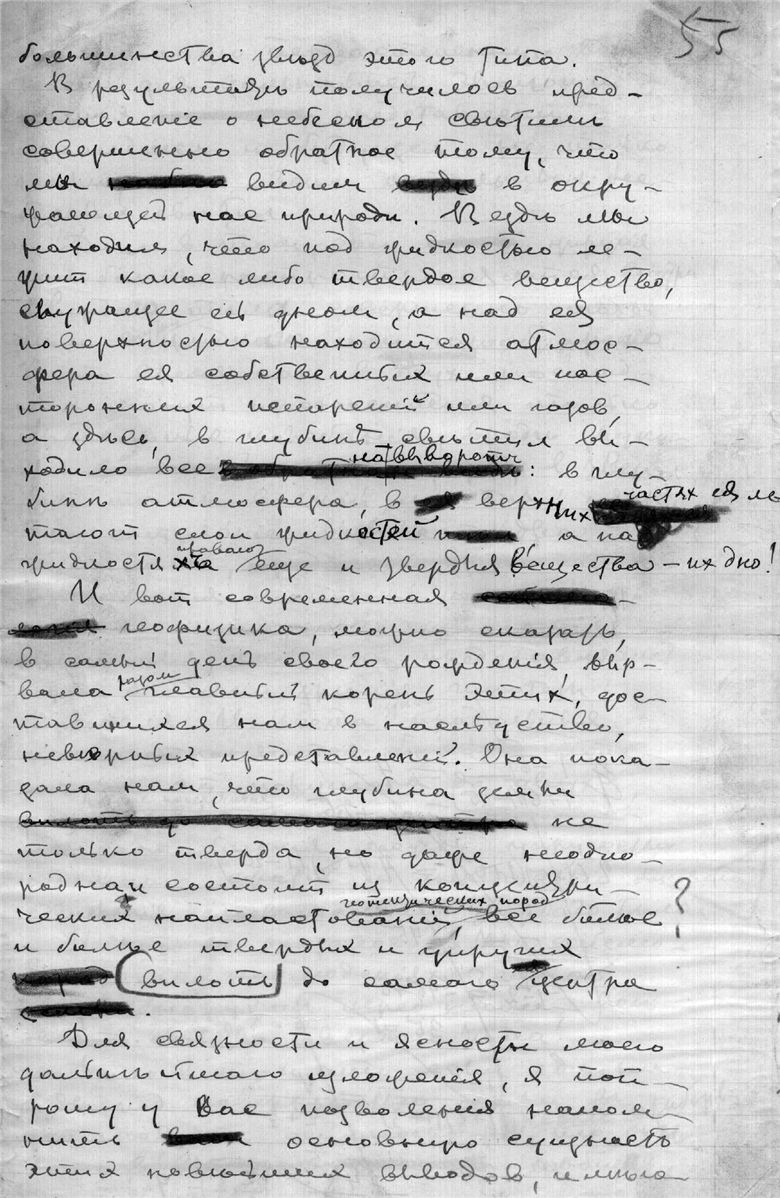 55
большинства звѣзд этого типа.
В результатѣ получилось пред-
ставленіе о небесном свѣтилѣ
совершенно обратное тому, что
мы видим в окру-
жающей нас природѣ. Вездѣ мы
находим, что под жидкостью ле-
жит какое либо твердое вещество,
служащее ей дном, а над ея
поверхностью находится атмос-
фера ея собственных или пос-
торонних испареній или газов,
а здѣсь, в глубинѣ свѣтил вы-
ходило все навыворот: в глу-
бинѣ атмосфера, в верхних частях ея ле
тают слои жидкостей а на
жидкостях еще и твердыя вещества – их дно!
И вот современная
геофизика, можно сказать,
в самый день своего рожденія, выр-
вала разом главный корень этих, дос-
тавшихся нам в наслѣдство,
невѣрных представленій. Она пока-
зала нам, что глубина земли
не
только тверда, но даже неодно-
родна и состоит из концентри-
ческих напластованій геологических пород, все болѣе ?
и болѣе твердых и упругих
вплоть до самого центра
.
Для связности и ясности моего
дальнѣйшаго изложенія, я поп-
рошу у Вас позволенія напом-
нить основную сущность
этих новѣйших выводов,